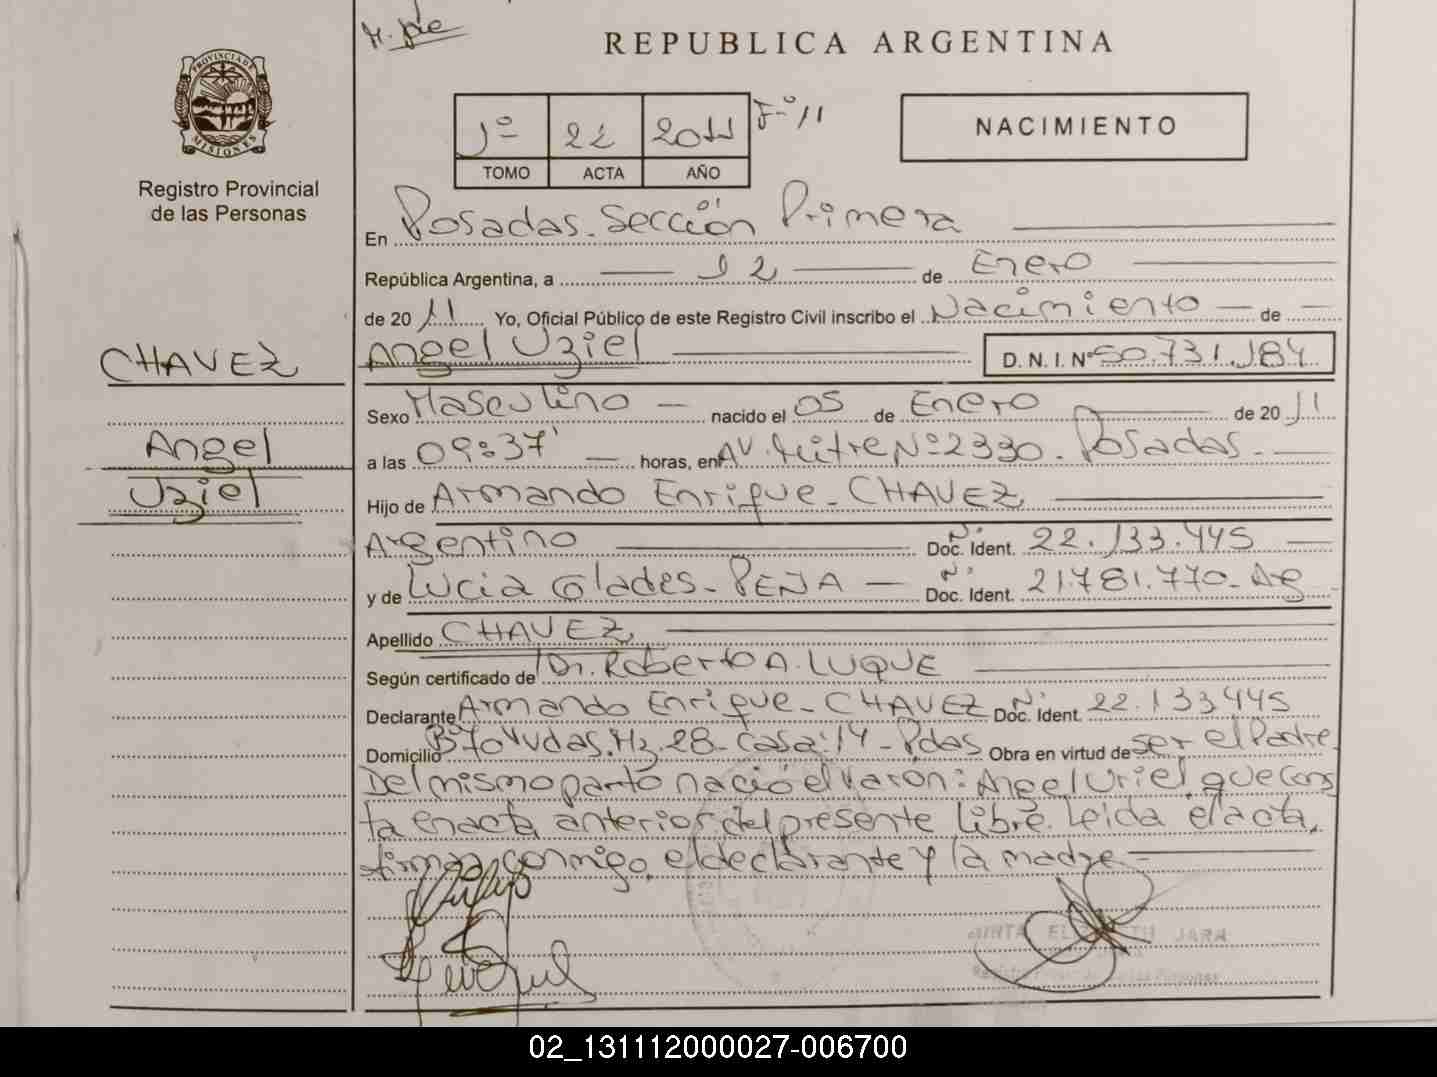 REPUBLICA ARGENTINA
PROVINCIA DE
MISIONES
Registro Provincial
de las Personas
1º 22 2011 Fº 11
TOMO ACTA AÑO
NACIMIENTO
En Posadas. Sección Primera
República Argentina, a 12 de Enero
de 2011 Yo, Oficial Público de este Registro Civil inscribo el Nacimiento de
CHAVEZ
Angel Uziel D. N. I. Nº 50.731.184
Sexo Masculino nacido el 05 de Enero de 2011
Angel
a las 09:37' horas, en AV. Mitre Nº 2330. Posadas.
Uziel
Hijo de Armando Enrique - CHAVEZ
Argentino Doc. Ident. Nº 22.133.445
y de Lucia Glades - PEÑA Doc. Ident. Nº 21.781.770 - Arg
Apellido CHAVEZ
Según certificado de Dr. Roberto A. LUQUE
Declarante Armando Enrique - CHAVEZ Doc. Ident. Nº 22.133.445
Domicilio Bº 70 Vvdas. Mz. 28 - Casa: 14 - Pdas Obra en virtud de ser el Padre
Del mismo parto nació el varon: Angel Uriel que Cons
ta en acta anterior del presente libro. Leida el acta,
firman conmigo, el declarante y la madre
ELIZABETH JARA
02_131112000027-006700